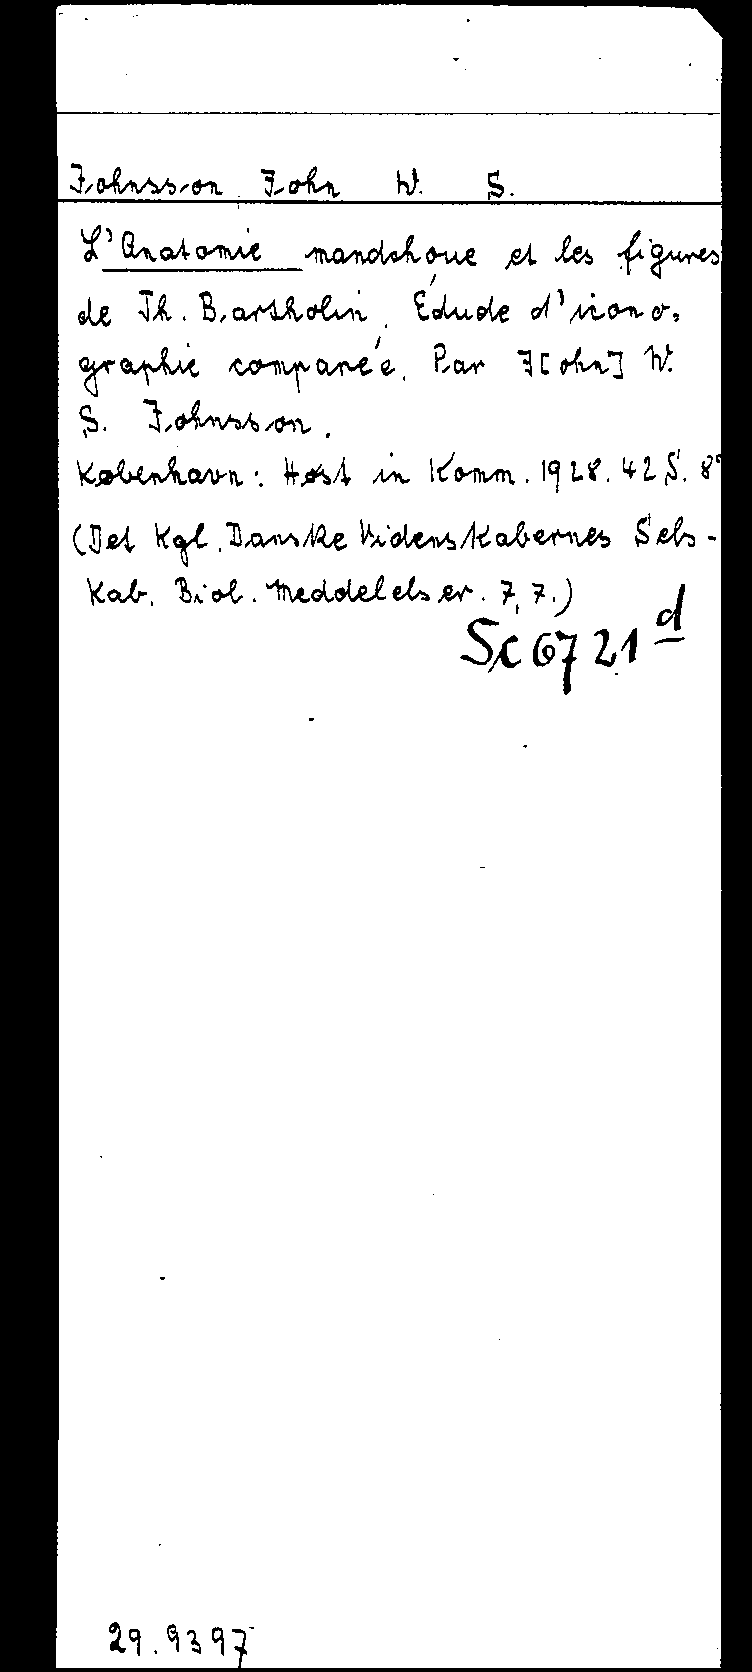 Johnsson, John W. S.
L'Anatomie mandchoue et les figures
de Th. Bartholin. Édude d'icono-
graphie comparée. Par J[ohn] W.
S. Johnsson.
København: Høst in Komm. 1928. 42 S. 8°
(Det Kgl. Danske Videnskabernes Sels-
kab. Biol. Meddelelser. 7,7.)
Sc 6721 d
29.9397